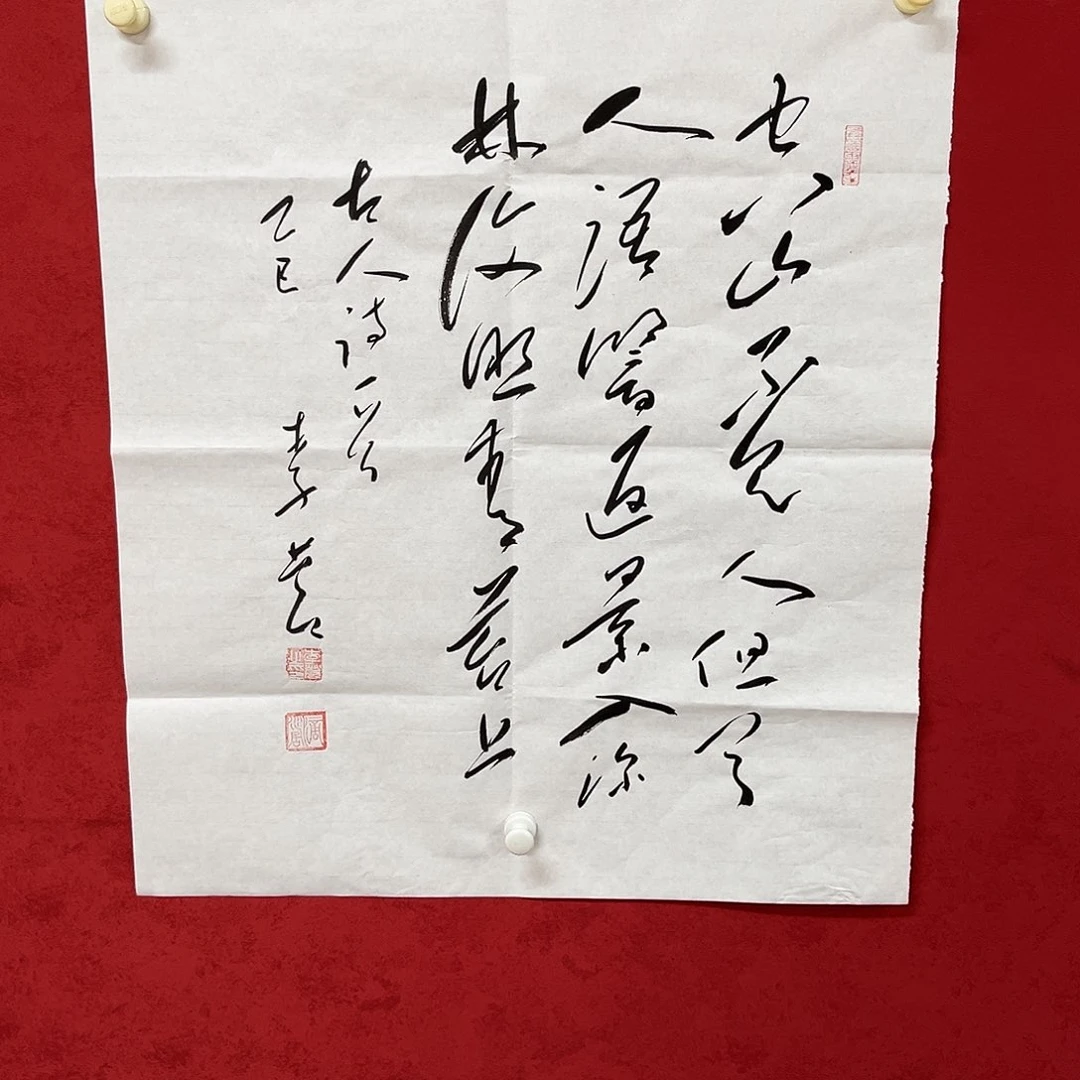 空山不见人但闻
人语响返景入深
林复照青苔上
古人诗一首
乙巳
李